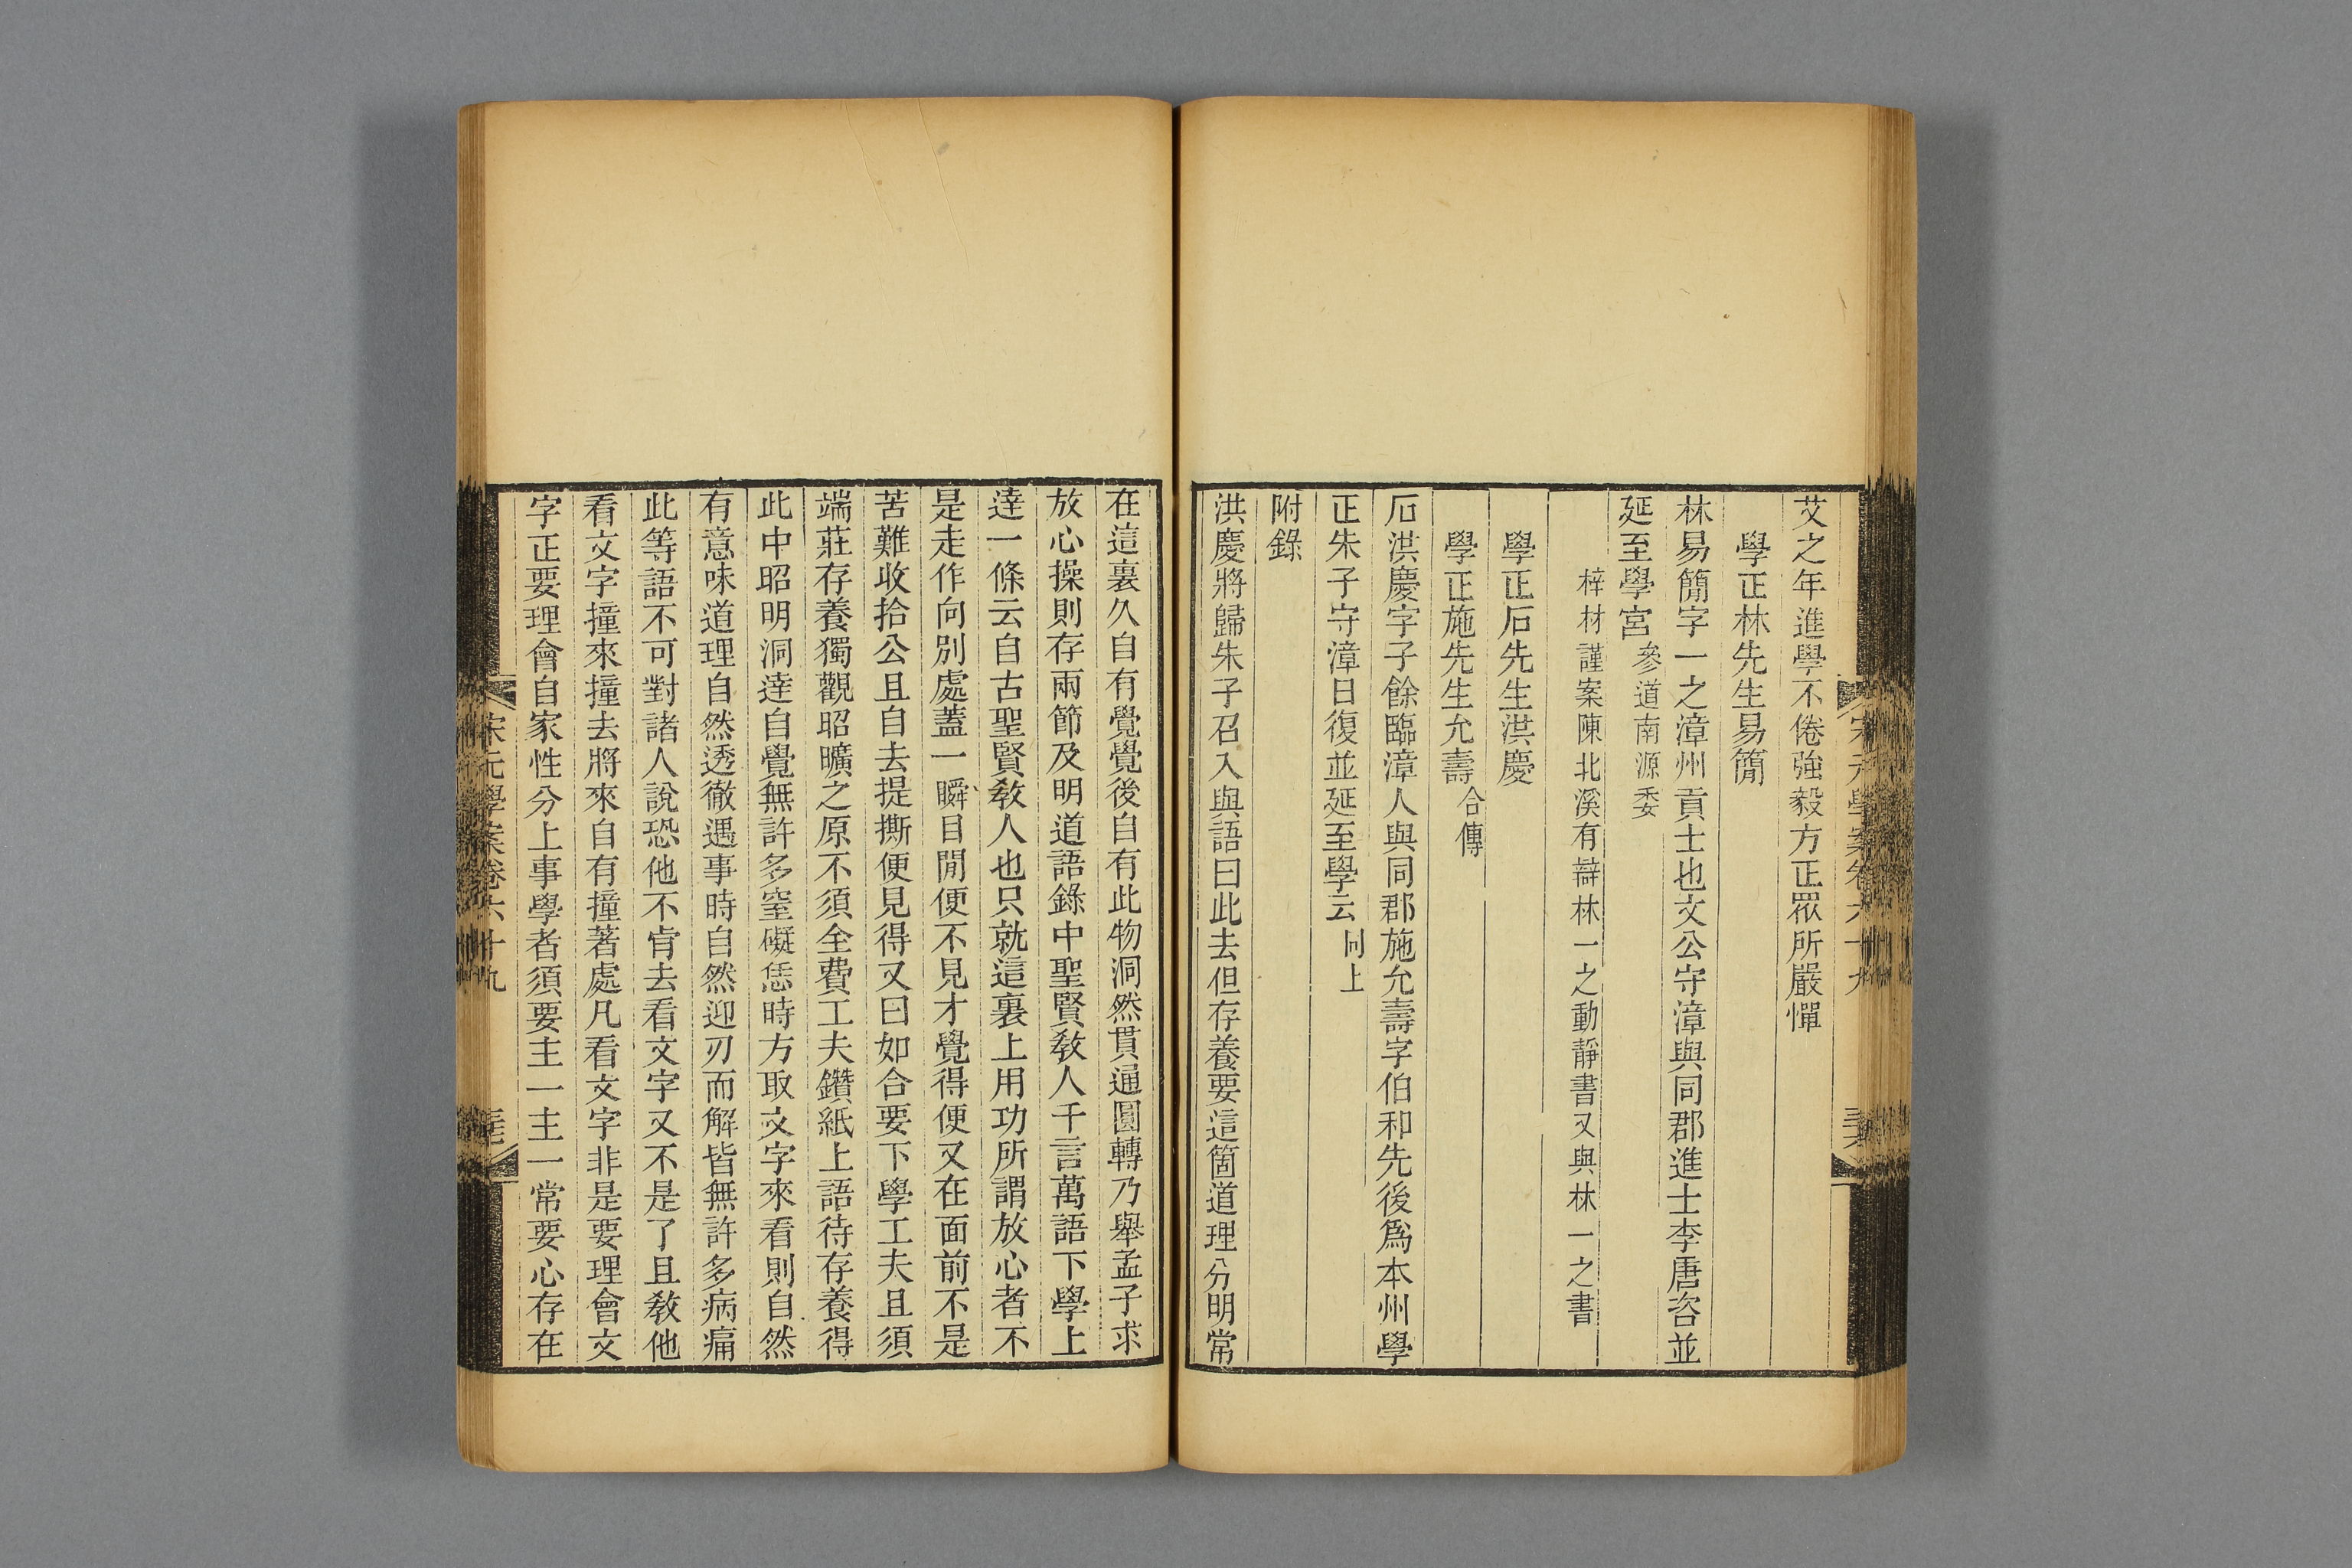 艾之年進學不倦強毅方正眾所嚴憚
學正林先生易簡
林易簡字一之漳州貢士也文公守漳與同郡進士李唐咨並
延至學宮參道南源委
梓材謹案陳北溪有辯林一之動靜書又與林一之書
學正石先生洪慶
學正施先生允壽合傳
石洪慶字子餘臨漳人與同郡施允壽字伯和先後爲本州學
正朱子守漳日復並延至學云同上
附錄
洪慶將歸朱子召入與語曰此去但存養要這箇道理分明常
在這裏久自有覺覺後自有此物洞然貫通圓轉乃舉孟子求
放心操則存兩節及明道語錄中聖賢敎人千言萬語下學上
達一條云自古聖賢敎人也只就這裏上用功所謂放心者不
是走作向別處蓋一瞬目閒便不見才覺得便又在面前不是
苦難收拾公且自去提撕便見得又曰如合要下學工夫且須
端莊存養獨觀昭曠之原不須全費工夫鑽紙上語待存養得
此中昭明洞達自覺無許多窒礙恁時方取文字來看則自然
有意味道理自然透徹遇事時自然迎刃而解皆無許多病痛
此等語不可對諸人說恐他不肯去看文字又不是了且敎他
看文字撞來撞去將來自有撞著處凡看文字非是要理會文
字正要理會自家性分上事學者須要主一主一常要心存在
宋元學案卷六十九